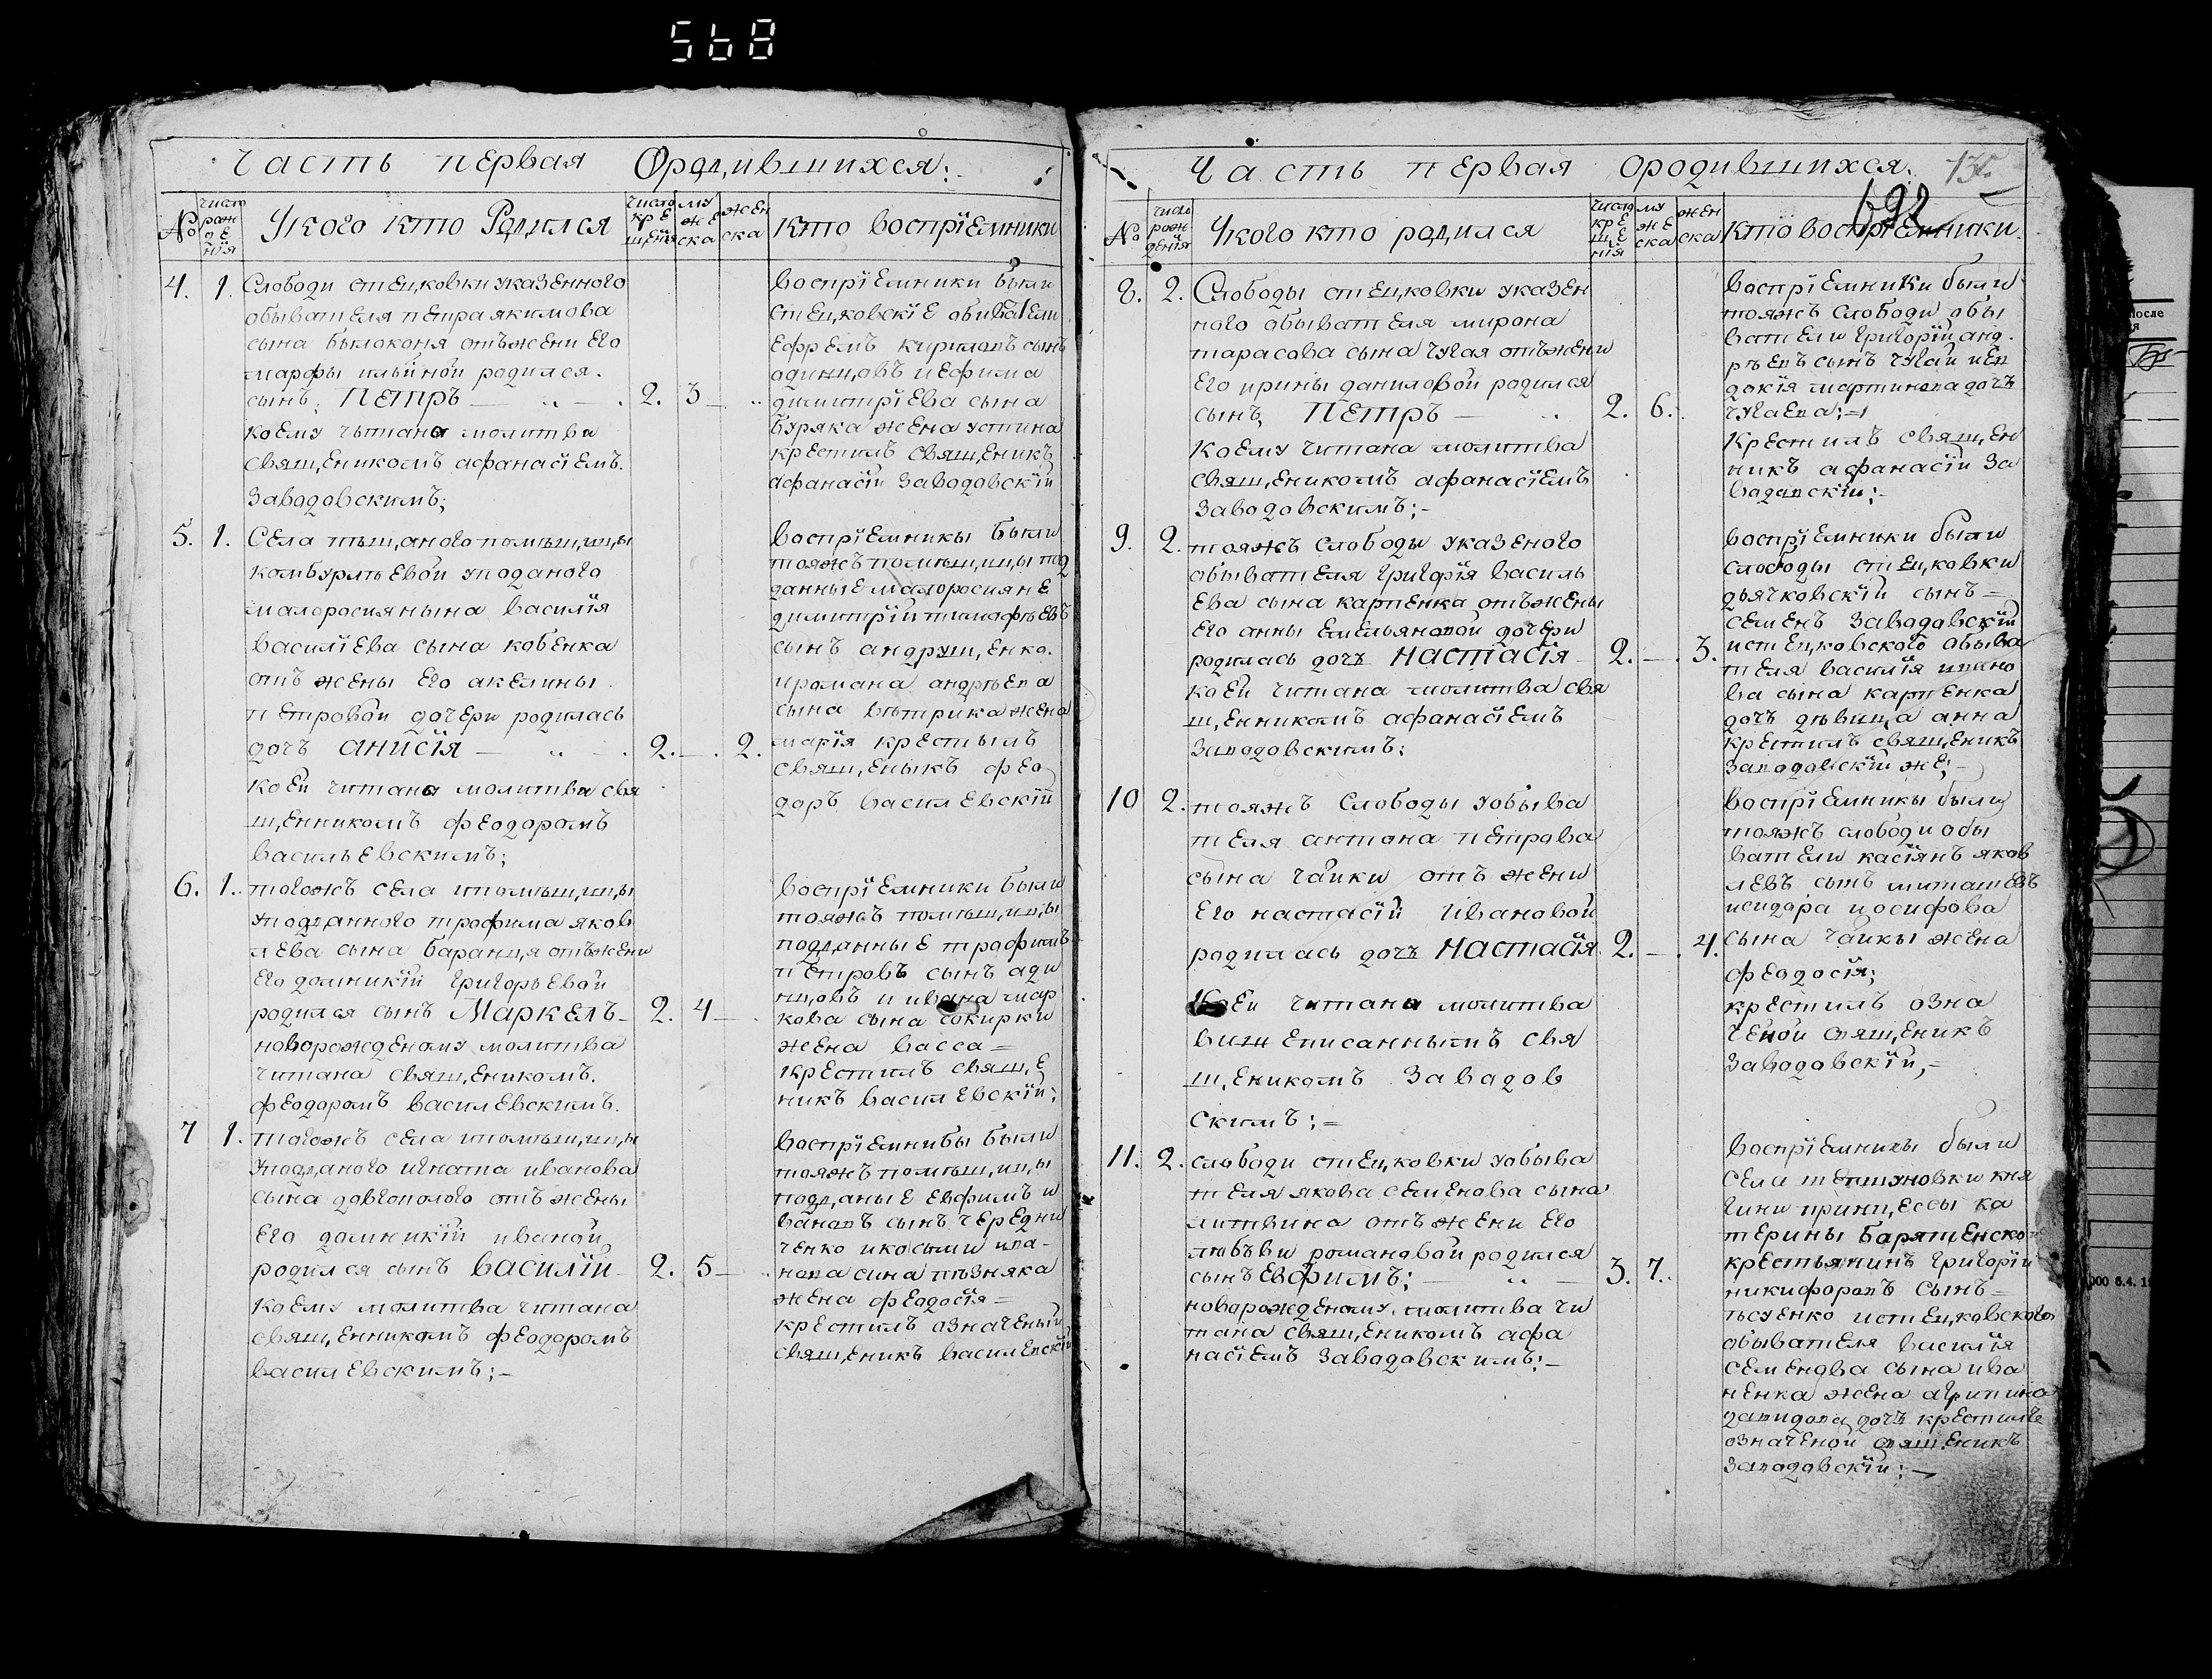 568
Часть первая Ородившихся:
№
число рождения
Укого кто Родился
число крещения
мужеска
женска
кто воспрїемники
4. 1. Слободи стецковки указенного
обывателя петра якимова
сына билоконя отъ жени его
марфы ильиной родился.
сынъ; Петръ 2. 3
коему читана молитва
священикомъ афанасїемъ.
Заводовскимъ;
воспрїемники были
стецковскїе обиватели
ефремъ кириловъ сынъ
одинцовъ и ефима
димитрїева сына
буряка жена устина
крестилъ священикъ
афанасїй Заводовскїй
5. 1. Села тищаного помѣщицы
комбурлѣевой уподаного
малоросиянына василїя
василїева сына кобенка
отъ жены его акелины
петровой дочери родилась
дочъ анисїя 2. — 2.
коей читана молитва свя
щенникомъ феодоромъ
васильевскимъ;
воспрїемникы были
тояжъ помѣщицы под
данные малоросияне
димитрїй тимофѣевъ
сынъ андрущенко.
ироmана андрѣева
сына вѣтрика жена
марїя крестылъ
священыкъ фео
доръ василевскїй
6. 1. тогожъ села ипомѣщицы
уподданного трофима яков
лева сына баранця отъ жени
его домникїй григорьевой
родился сынъ Маркелъ 2. 4
новорожденому молитва
читана священикомъ.
феодоромъ василевскимъ.
воспрїемники были
тояжъ помѣщицы
подданные трофимъ
петровъ сынъ оди
нцовъ и ивана мар
кова сына сокирки
жена васса
крестилъ свяще
никъ василевскїй;
7 1. тогожъ села ипомѣщицы
уподданого игната иванова
сына довгополого отъ жены
его домникїй иваной
родился сынъ Василїй 2. 5
коему молитва читана
священникомъ феодоромъ
василевскимъ;
воспрїемникы были
тояжъ помѣщицы
подданые евфимъ и
вановъ сынъ чередни
ченко икосьми ива
нова сина
жена феодосїя
крестилъ означеный
священикъ василевскїй
Часть первая ородившихся.
135
692
№
число рождения
Укого кто родился
число крещения
мужеска
женска
кто воспрїемники.
8. 2. Слободы стецковки указен
ного обывателя мирона
тарасова сына чугая отъ жени
его ирины даниловой родился
сынъ Петръ 2. 6.
коему читана молитва
священикомъ афанасїемъ
Заводовскимъ;
воспрїемники были
тояжъ Слободи обы
ватели григорїй анд.
рѣевъ сынъ чугай иев
докїя мартинова дочъ
чугаева;
Крестилъ священ
никъ афанасїй За
водовскїй;
9. 2. тояжъ слободы указеного
обывателя григорїя василь
ева сына карпенка отъ жены
его анны емельяновой дочери
родилась дочъ Настасїя 2. — 3.
коей читана молитва свя
щенникомъ афанасїемъ
Заводовскимъ;
воспрїемники были
слободы стецковки
дьячковскїй сынъ
семенъ Заводовскїй
истецковского обыва
теля василїя ивано
ва сына карпенка
дочъ дѣвица анна
крестилъ священикъ
Заводовскїй же;
10 2. тояжъ Слободы уобыва
теля антона петрова
сына чайки отъ жени
его настасїй ивановой
родилась дочъ Настасїя 2. — 4.
Коей читана молитва
вишеписаннымъ свя
щеникомъ Заводов
скимъ;
воспрїемникы были
тояжъ слободи обы
ватели касїянъ яков
левъ сынъ
исидора иосифова
сына чайкы жена
феодосїя;
крестилъ озна
ченой священикъ
Заводовскїй,
11. 2. слободи стецковки уобыва
теля якова семенова сына
литвина отъ жени его
любъви романовой родился
сынъ Евфимъ; 3. 7.
новорожденому молитва чи
тана священикомъ афа
насїемъ Заводовскимъ;
воспрїемникы были
Села кня
гини принцессы ка
терины Барятенской
крестьянинъ григорїй
никифоровъ сынъ
истецковского
обывателя василїя
семенова сына ива
ненка жена агрипина
давидова дочъ крестилъ
означеной священикъ
Заводовскїй;